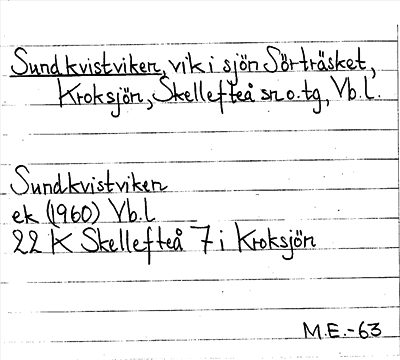 Sundkvistviken, vik i sjön Sörträsket,
Kroksjön, Skellefteå sn o. tg, Vb.l.
Sundkvistviken
ek (1960) Vb.l
22 K Skellefteå 7 i Kroksjön
M.E.-63